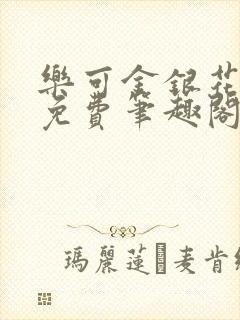 樂可金銀花
免費筆趣閣
瑪麗蓮麥肯